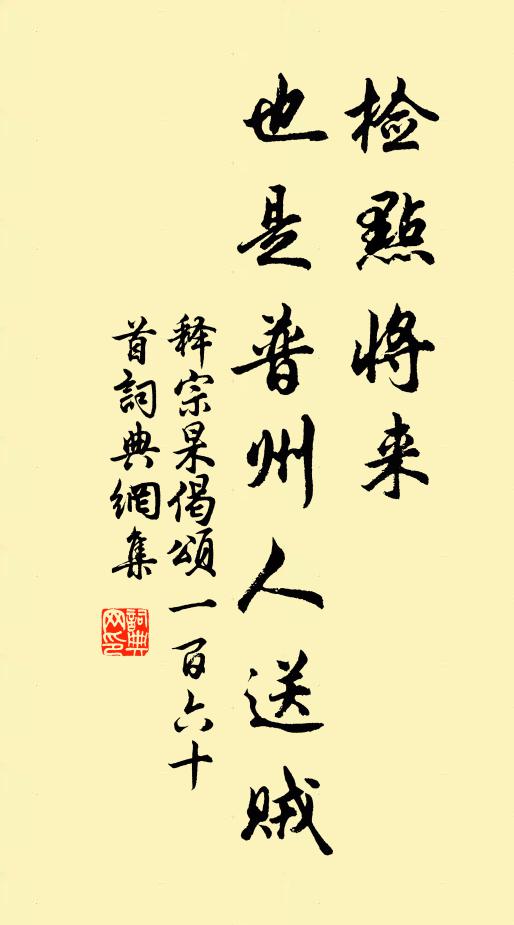 检點将来
也是普州人送贼
释宗杲偈頌一百六十
首詞典網集
詞典網印